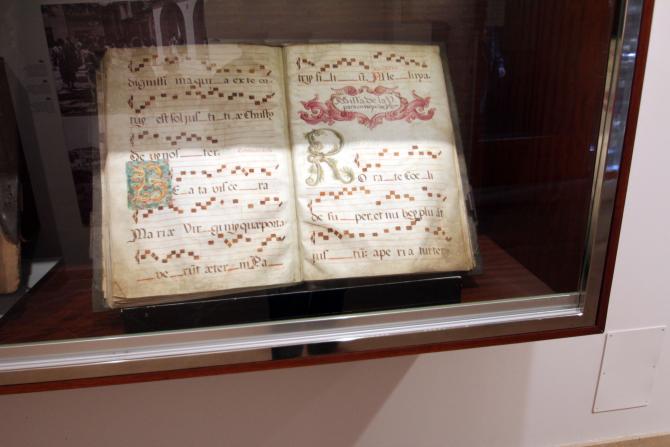 dignissi ma qui a ex te or
tus est sol jus ti ti æ Chrisť
De us nos ter.
BE a ta visce ra
Ma ri æ Vir gi nis quæ porta
ve rũt æter ni Pa
trys fi li
Missa de la
RO ra te Cœ li
de su per, et nu bes plu ãt
jus tũ: ape ri a tur ter